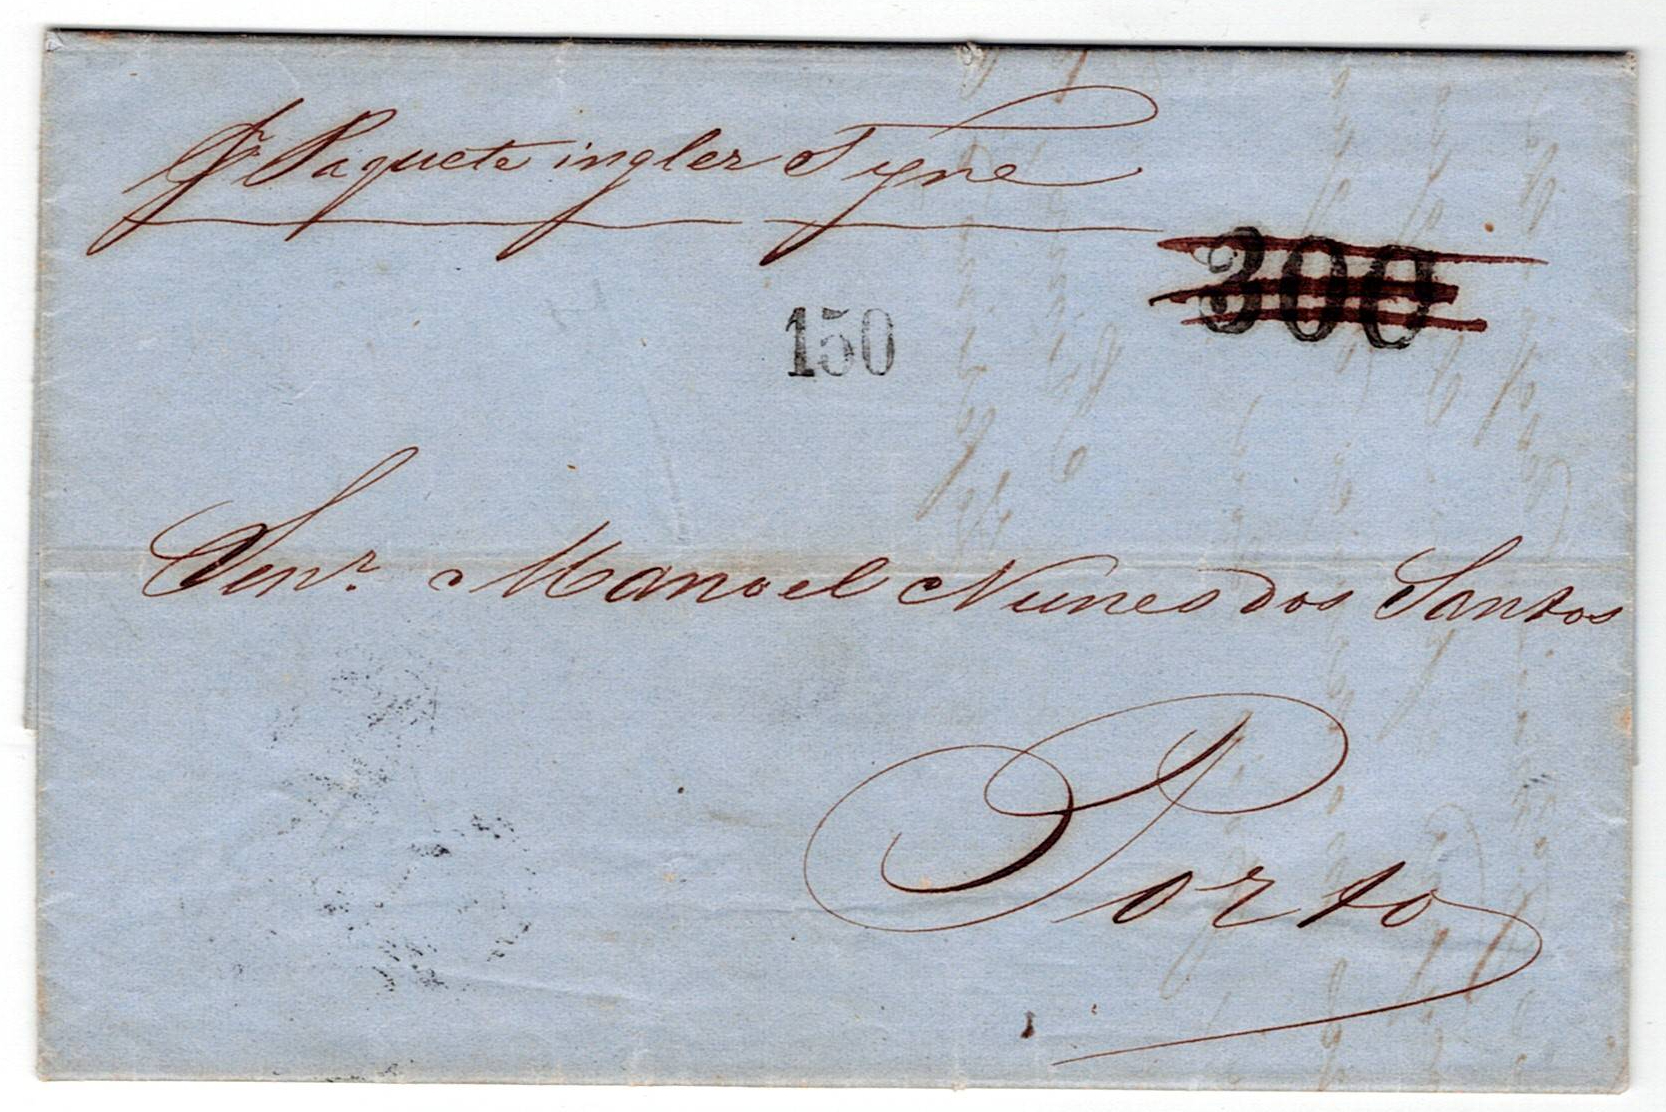 Pr Paquete inglez Tyne
300
150
Senr. Manoel Nunes dos Santos
Porto